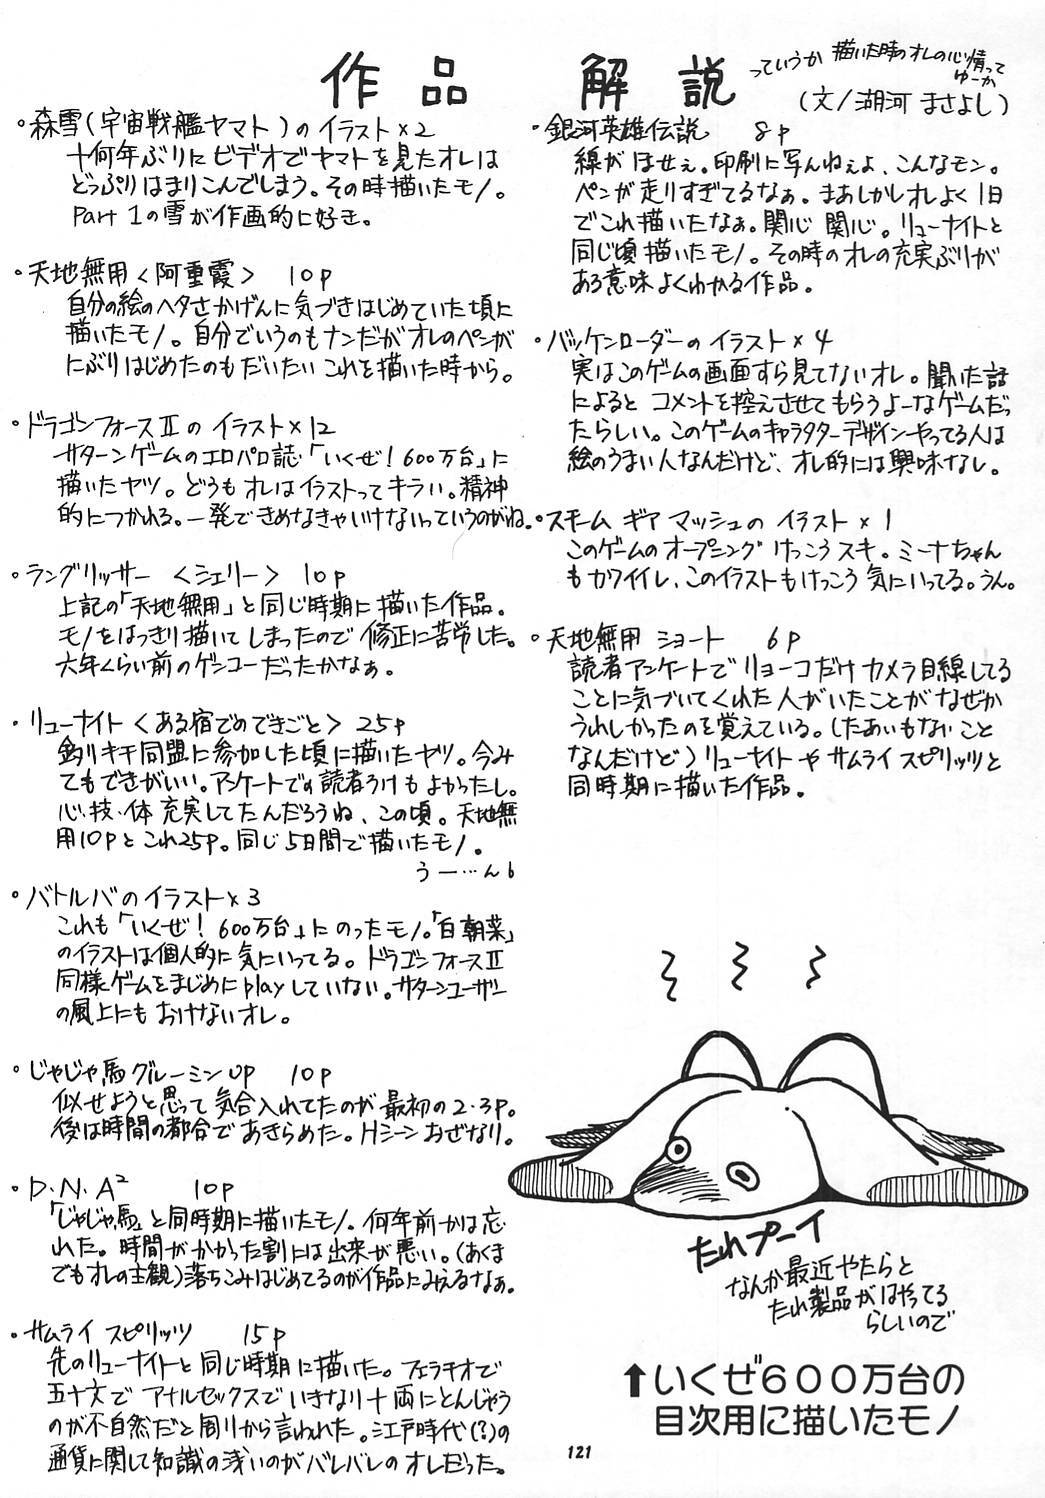 作品 解説
っていうか 描いた時のオレの心情って
ゆーか
(文/湖河 まさよし)
・森雪(宇宙戦艦ヤマト)のイラスト×2
十何年ぶりにビデオでヤマトを見たオレは
どっぷりはまりこんでしまう。その時描いたモノ。
Part 1の雪が作画的に好き。
・天地無用<阿重霞> 10p
自分の絵のヘタさかげんに気づきはじめていた頃に
描いたモノ。自分でいうのもナンだがオレのペンが
にぶりはじめたのもだいたいこれを描いた時から。
・ドラゴンフォースⅡのイラスト×12
サターンゲームのエロパロ誌・「いくぜ!600万台」に
描いたヤツ。どうもオレはイラストってキライ。精神
的につかれる。一発できめなきゃいけないっていうのがね。
・ラングリッサー <シェリー> 10p
上記の「天地無用」と同じ時期に描いた作品。
モノをはっきり描いてしまったので修正に苦労した。
六年くらい前のゲンコーだったかなぁ。
・リューナイト<ある宿でのできごと> 25p
釣りキチ同盟に参加した頃に描いたヤツ。今み
てもできがいい。アンケートでの読者うけもよかったし。
心・技・体 充実してたんだろうね、この頃。天地無
用10pとこれ25p。同じ5日間で描いたモノ。
うー…ん
・バトルバのイラスト×3
これも「いくぜ!600万台」にのったモノ。「白朝菜」
のイラストは個人的に気にいってる。ドラゴンフォースⅡ
同様ゲームをまじめにplayしていない。サターンユーザー
の風上にもおけないオレ。
・じゃじゃ馬グルーミンUP 10p
似せようと思って気合入れてたのが最初の2・3p。
後は時間の都合であきらめた。Hシーンおざなり。
・D・N・A² 10p
「じゃじゃ馬」と同時期に描いたモノ。何年前かは忘
れた。時間がかかった割には出来が悪い。(あくま
でもオレの主観)落ちこみはじめてるのが作品にみえるなぁ。
・サムライスピリッツ 15p
先のリューナイトと同じ時期に描いた。フェラチオで
五十文でアナルセックスでいきなり十両にとんじゃう
のが不自然だと周りから言われた。江戸時代(?)の
通貨に関して知識の浅いのがバレバレのオレだった。
・銀河英雄伝説 8p
線がほせぇ。印刷に写んねぇよ、こんなモン。
ペンが走りすぎてるなぁ。まあしかしオレよく1日
でこれ描いたなぁ。関心 関心。リューナイトと
同じ頃描いたモノ。その時のオレの充実ぶりが
ある意味よくわかる作品。
・バッケンローダーのイラスト×4
実はこのゲームの画面すら見てないオレ。聞いた話
によると コメントを控えさせてもらうよーなゲームだっ
たらしい。このゲームのキャラクターデザインやってる人は
絵のうまい人なんだけど、オレ的には興味なし。
・スチームギアマッシュのイラスト×1
このゲームのオープニングけっこうスキ。ミーナちゃん
もカワイイし、このイラストもけっこう気にいってる。うん。
・天地無用 ショート 6p
読者アンケートでリョーコだけカメラ目線してる
ことに気づいてくれた人がいたことがなぜか
うれしかったのを覚えている。(たあいもないこと
なんだけど)リューナイトやサムライスピリッツと
同時期に描いた作品。
たれプーイ
なんか最近やたらと
たれ製品がはやってる
らしいので
↑いくぜ600万台の
目次用に描いたモノ
121